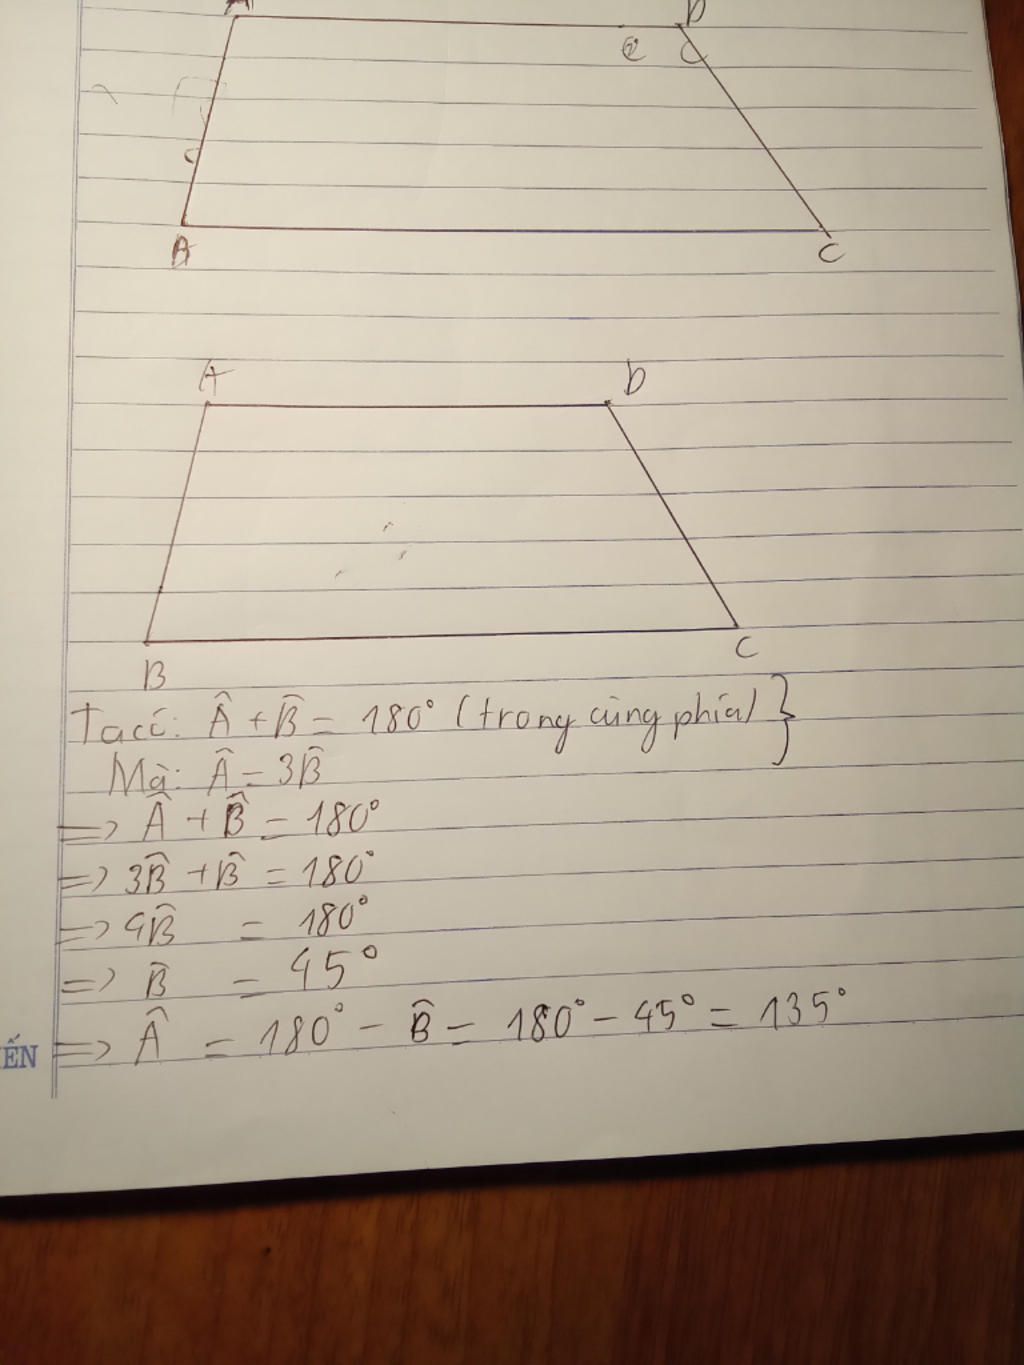 A D
e C
A C
A D
B C
Ta có: Â + B̂ = 180° (trong cùng phía) }
Mà: Â = 3B̂
=> Â + B̂ = 180°
=> 3B̂ + B̂ = 180°
=> 4B̂ = 180°
=> B̂ = 45°
=> Â = 180° - B̂ = 180° - 45° = 135°
ẾN